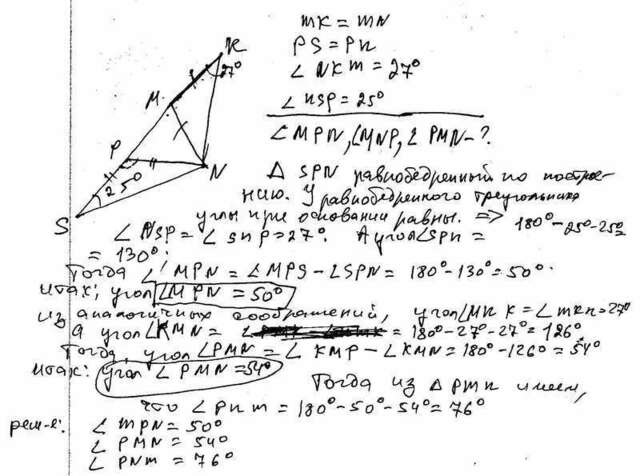 MK = MN
PS = PN
∠ NKM = 27°
∠ NSP = 25°
∠ MPN, ∠MNP, ∠ PMN - ?
K
27°
M
P
N
25°
S
Δ SPN равнобедренный по построе-
нию. У равнобедренного треугольника
углы при основании равны. =>
∠ NSP = ∠ SNP = 27°. А угол ∠SPN = 180° - 25° - 25° =
= 130°.
Тогда ∠ MPN = ∠ MPS - ∠ SPN = 180° - 130° = 50°.
Итак: угол ∠MPN = 50°
Из аналогичных соображений, угол ∠MNK = ∠MKN = 27°
а угол ∠KMN = = 180° - 27° - 27° = 126°
Тогда, угол ∠PMN = ∠ KMP - ∠KMN = 180° - 126° = 54°
Итак: угол ∠ PMN = 54°
Тогда из Δ PMN имеем,
что ∠ PNM = 180° - 50° - 54° = 76°
реш-е: ∠ MPN = 50°
∠ PMN = 54°
∠ PNM = 76°